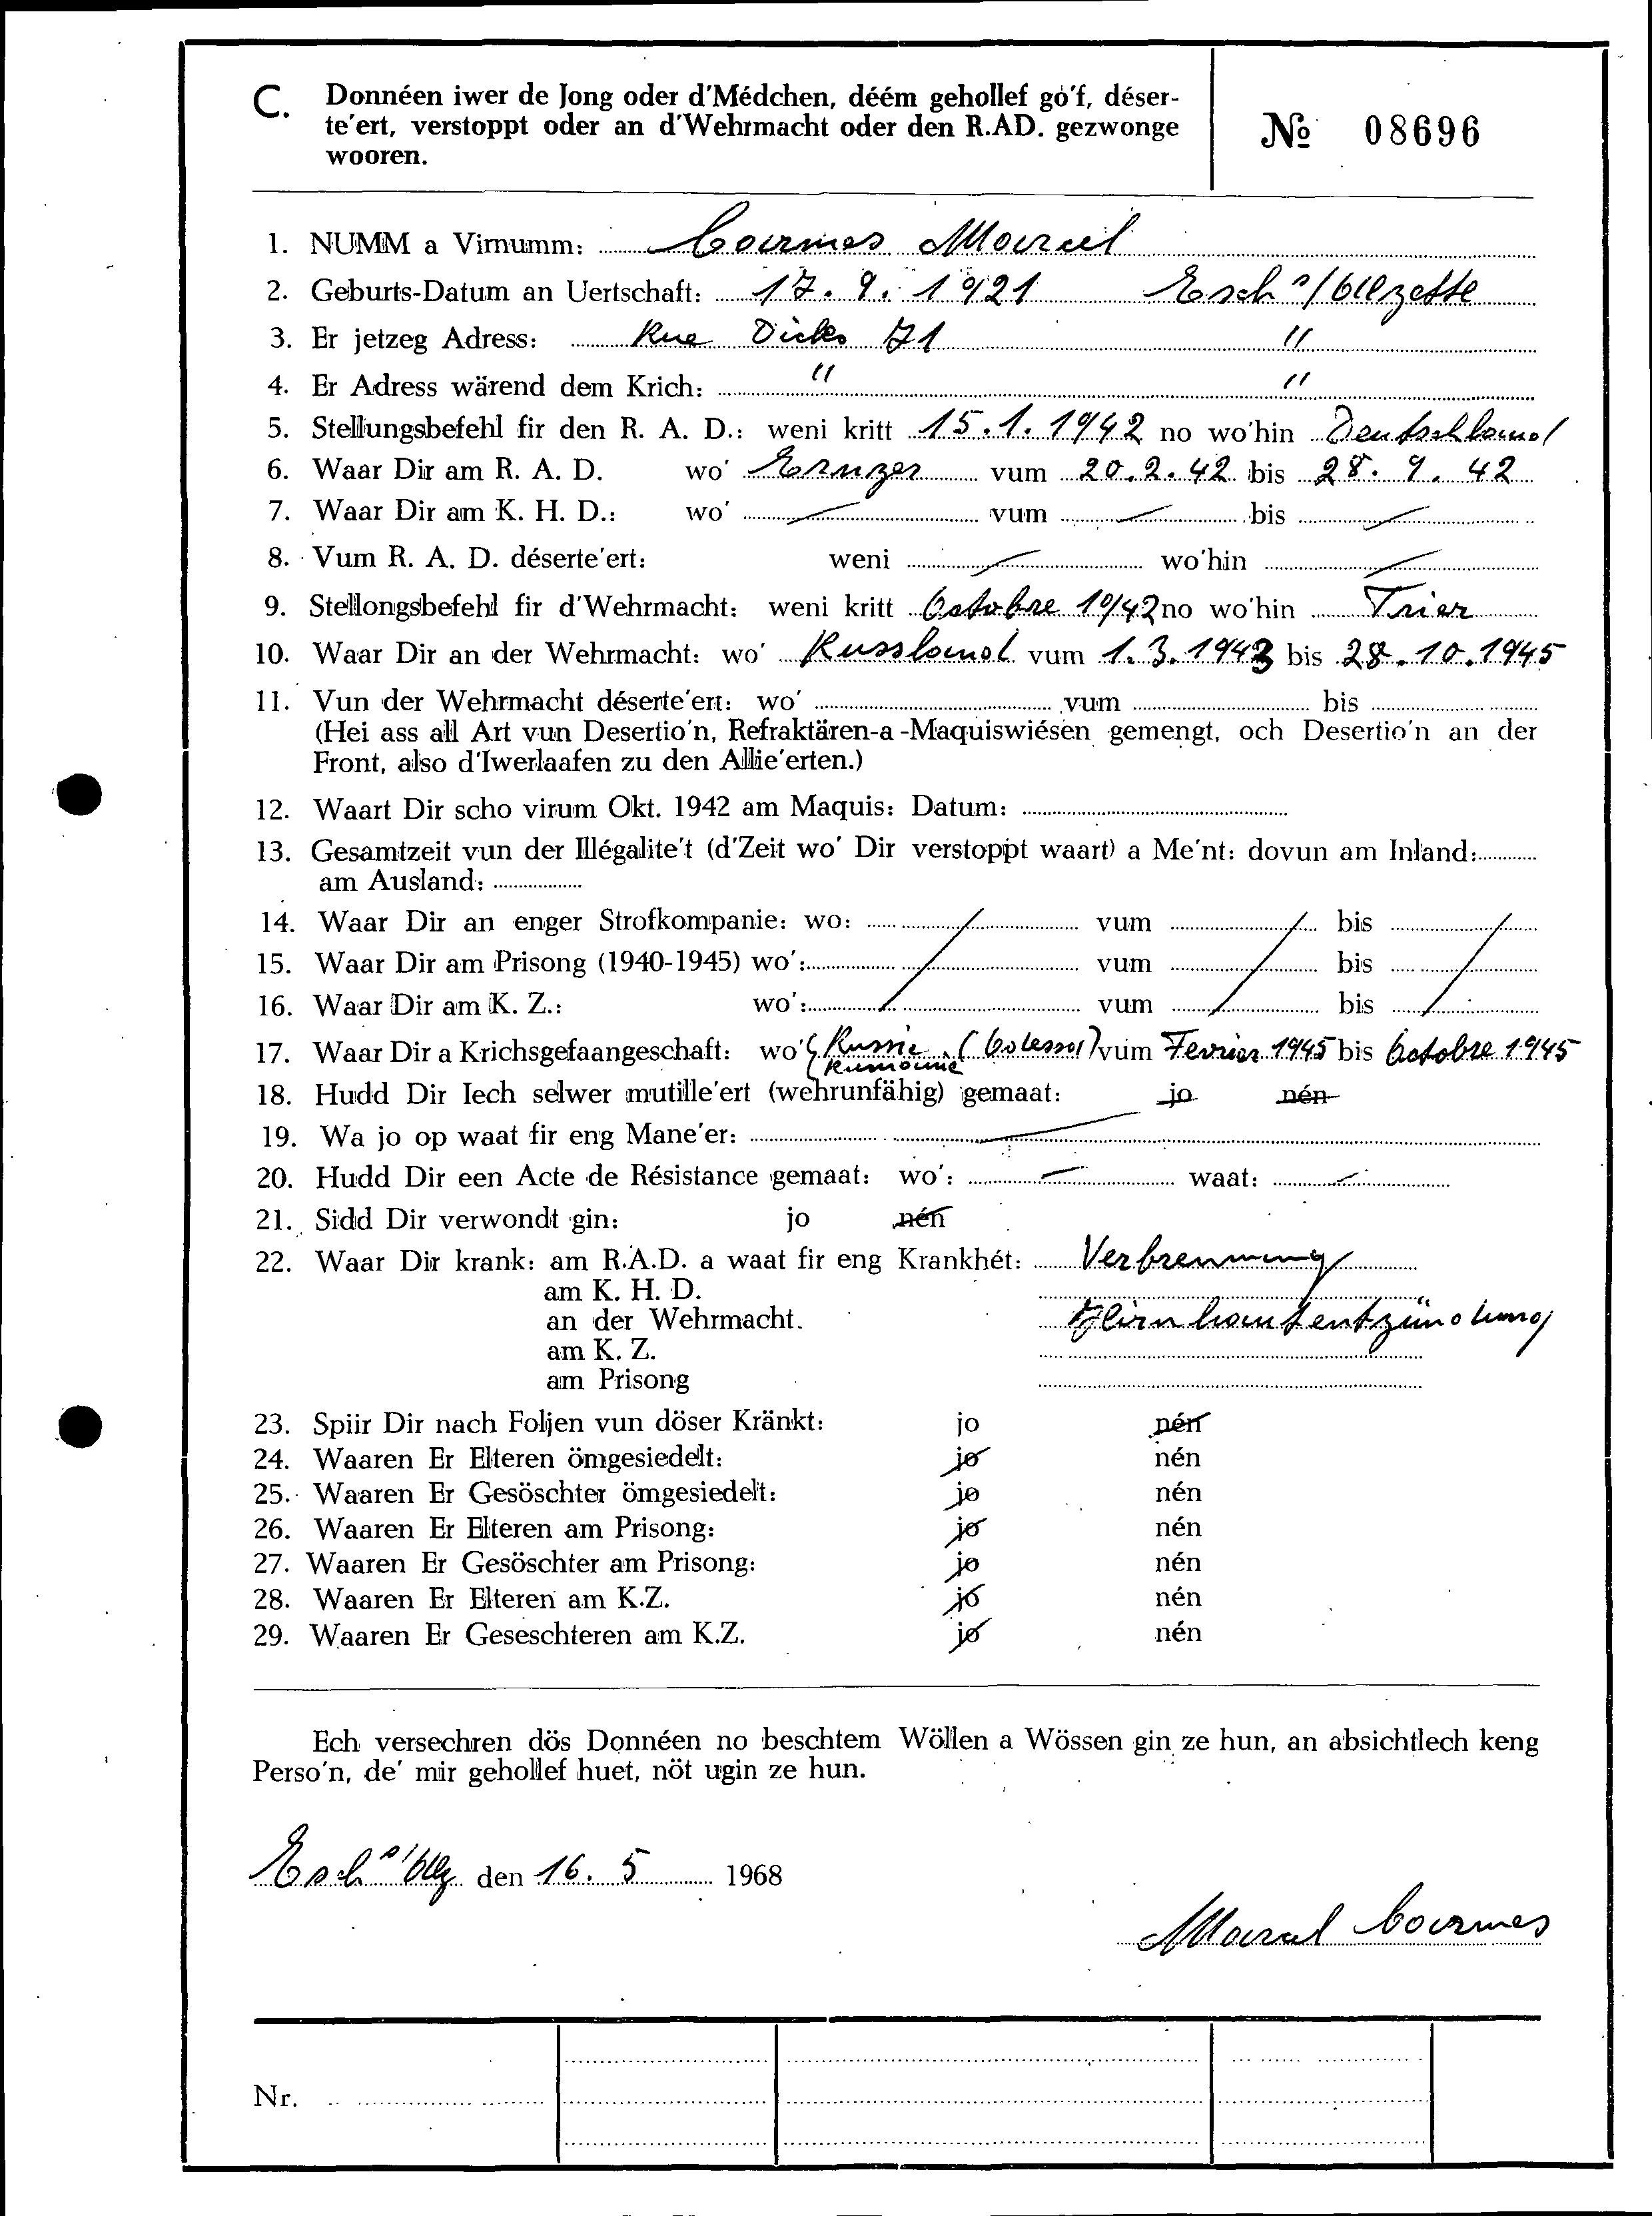 C. Donnéen iwer de Jong oder d'Médchen, déém gehollef go'f, déser-
te'ert, verstoppt oder an d'Wehrmacht oder den R.AD. gezwonge
wooren.
№ 08696
1. NUMM a Virnumm: Coermes Marcel
2. Geburts-Datum an Uertschaft: 17. 9. 1921 Esch s/Alzette
3. Er jetzeg Adress: Rue Dicks 71 "
4. Er Adress wärend dem Krich: " "
5. Stellungsbefehl fir den R. A. D.: weni kritt 15.1.1942 no wo'hin Deutschland
6. Waar Dir am R. A. D. wo' vum 20.2.42 bis 28. 9. 42
7. Waar Dir am K. H. D.: wo' — vum — bis —
8. Vum R. A. D. déserte'ert: weni — wo'hin —
9. Stellongsbefehl fir d'Wehrmacht: weni kritt Octobre 10/42 no wo'hin Trier
10. Waar Dir an der Wehrmacht: wo' Russland vum 1.3.1943 bis 28.10.1945
11. Vun der Wehrmacht déserte'ert: wo' vum bis
(Hei ass all Art vun Desertio'n, Refraktären-a-Maquiswiésen gemengt, och Desertio'n an der
Front, also d'Iwerlaafen zu den Allie'erten.)
12. Waart Dir scho virum Okt. 1942 am Maquis: Datum:
13. Gesamtzeit vun der Illégalite't (d'Zeit wo' Dir verstoppt waart) a Me'nt: dovun am Inland:
am Ausland:
14. Waar Dir an enger Strofkompanie: wo: / vum / bis /
15. Waar Dir am Prisong (1940-1945) wo': / vum / bis /
16. Waar Dir am K. Z.: wo': / vum / bis /
17. Waar Dir a Krichsgefaangeschaft: wo' Russie (Odessa) vum Fevrier 1945 bis Octobre 1945
Rumänie
18. Hudd Dir Iech selwer mutille'ert (wehrunfähig) gemaat: jo nén
19. Wa jo op waat fir eng Mane'er: —
20. Hudd Dir een Acte de Résistance gemaat: wo': — waat: —
21. Sidd Dir verwondt gin: jo nén
22. Waar Dir krank: am R.A.D. a waat fir eng Krankhét: Verbrennung
am K. H. D.
an der Wehrmacht. Hirnhautentzündung
am K. Z.
am Prisong
23. Spiir Dir nach Foljen vun döser Kränkt: jo nén
24. Waaren Er Elteren ömgesiedelt: jo nén
25. Waaren Er Gesöschter ömgesiedelt: jo nén
26. Waaren Er Elteren am Prisong: jo nén
27. Waaren Er Gesöschter am Prisong: jo nén
28. Waaren Er Elteren am K.Z. jo nén
29. Waaren Er Geseschteren am K.Z. jo nén
Ech versechren dös Donnéen no beschtem Wöllen a Wössen gin ze hun, an absichtlech keng
Perso'n, de' mir gehollef huet, nöt ugin ze hun.
Esch s/Alz den 16. 5 1968
Marcel Coermes
Nr.